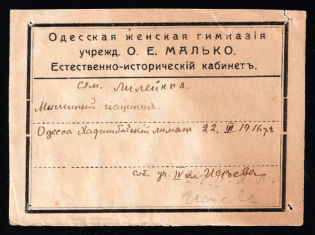 Одесская женская гимназія
учрежд. О. Е. МАЛЬКО.
Естественно-историческій кабинетъ.
сем. Лилейныя.
Мышиный гіацинтъ.
Одесса Хаджибейскій лиманъ 22. III. 1916 г.
соб. уч. IV кл.